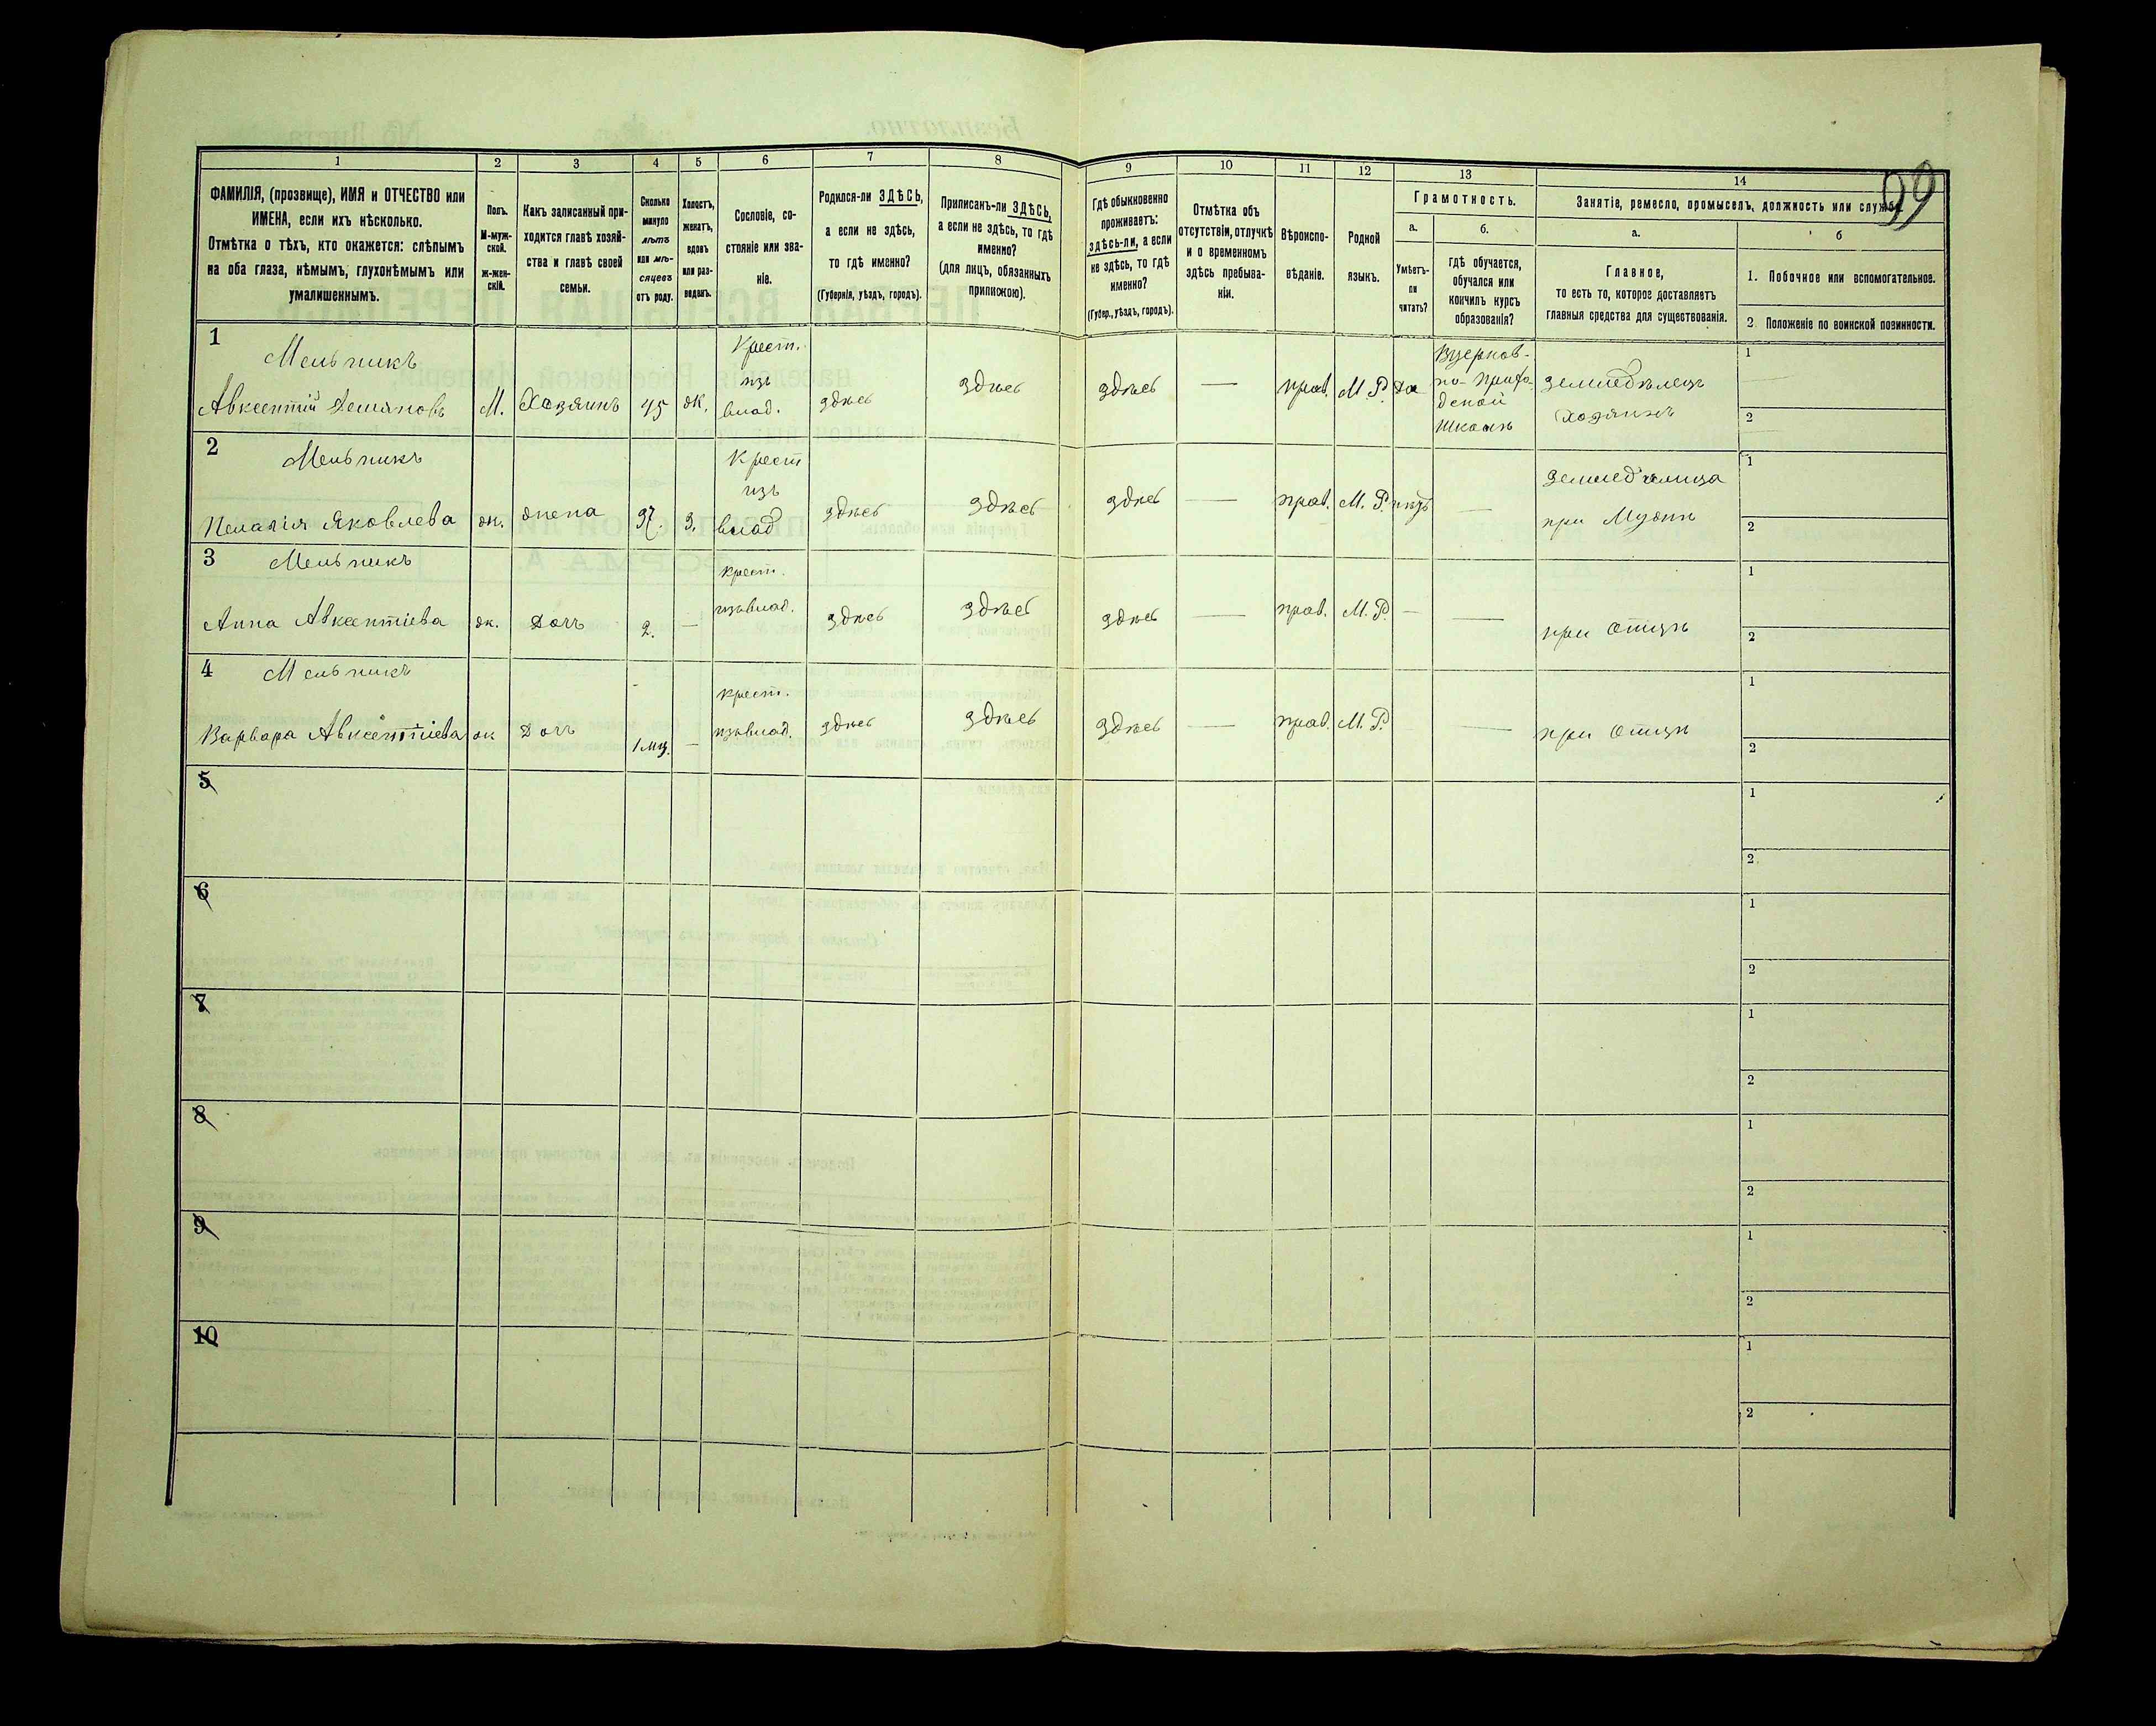 99
1 2 3 4 5 6 7 8 9 10 11 12 13 14
ФАМИЛІЯ, (прозвище), ИМЯ и ОТЧЕСТВО или
ИМЕНА, если ихъ нѣсколько.
Отмѣтка о тѣхъ, кто окажется: слѣпымъ
на оба глаза, нѣмымъ, глухонѣмымъ или
умалишеннымъ.
Полъ.
М-муж-
ской.
ж-жен-
скій.
Какъ записанный при-
ходится главѣ хозяй-
ства и главѣ своей
семьи.
Сколько
минуло
лѣтъ
или мѣ-
сяцевъ
отъ роду.
Холостъ,
женатъ,
вдовъ
или раз-
веденъ.
Сословіе, со-
стояніе или зва-
ніе.
Родился-ли ЗДѢСЬ,
а если не здѣсь,
то гдѣ именно?
(Губернія, уѣздъ, городъ).
Приписанъ-ли ЗДѢСЬ,
а если не здѣсь, то гдѣ
именно?
(для лицъ, обязанныхъ
припискою).
Гдѣ обыкновенно
проживаетъ:
здѣсь-ли, а если
не здѣсь, то гдѣ
именно?
(Губер., уѣздъ, городъ).
Отмѣтка объ
отсутствіи, отлучкѣ
и о временномъ
здѣсь пребыва-
ніи.
Вѣроиспо-
вѣданіе.
Родной
языкъ.
Грамотность.
а.
Умѣетъ-
ли
читать?
б.
гдѣ обучается,
обучался или
кончилъ курсъ
образованія?
Занятіе, ремесло, промыселъ, должность или служба.
а.
Главное,
то есть то, которое доставляетъ
главныя средства для существованія.
б
1. Побочное или вспомогательное.
2 Положеніе по воинской повинности.
1
Мельникъ
Авксентій Демяновъ
М.
Хазяинъ
45
ж.
Крест.
изъ
влад.
здѣсь
здѣсь
здѣсь
—
прав.
М. Р.
да
Вцерков-
но-прихо-
дской
Школѣ
земледѣлецъ
хозяинъ
1
2
2
Мельникъ
Пелагія Яковлева
ж.
жена
37.
З.
Крест
изъ
влад
здѣсь
здѣсь
здѣсь
—
прав.
М. Р.
нѣтъ
—
земледѣлица
при Мужѣ
1
2
3
Мельникъ
Анна Авксентіева
ж.
Доч
2.
—
крест.
изъвлад.
здѣсь
здѣсь
здѣсь
—
прав.
М. Р.
—
—
при Отцѣ
1
2
4
Мельникъ
Варвара Авксентіева
ж
Доч
1 мц.
—
крест.
изъвлад.
здѣсь
здѣсь
здѣсь
—
прав.
М. Р.
—
при Отцѣ
1
2
5
1
2
6
1
2
7
1
2
8
1
2
9
1
2
10
1
2